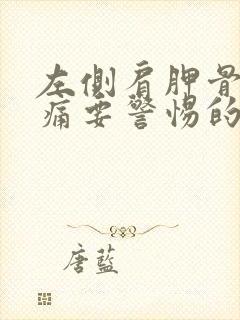 左側肩胛骨
痛要警惕的
唐藍